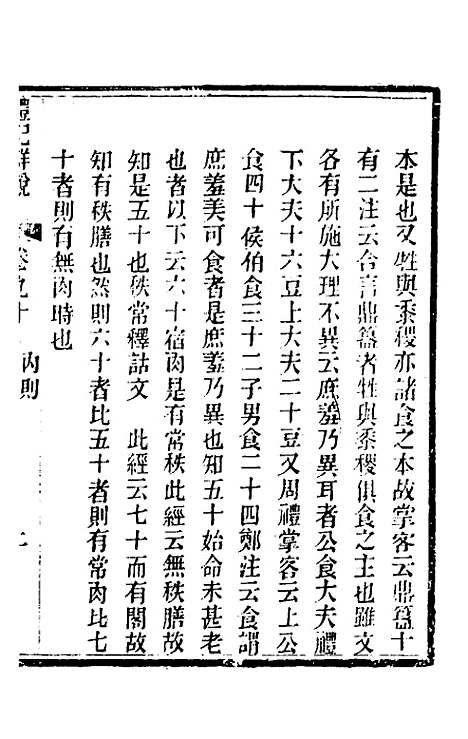 本是也又牲與黍稷亦諸食之本故掌客云鼎簋十
有二注云合言鼎簋者牲與黍稷俱食之主也雖文
各有所施大理不異云庶羞乃異耳者公食大夫禮
下大夫十六豆上大夫二十豆又周禮掌客云上公
食四十侯伯食三十二子男食二十四鄭注云食謂
庶羞美可食者是庶羞乃異也知五十始命未甚老
也者以下云六十宿肉是有常秩此經云無秩膳故
知是五十也秩常釋詁文 此經云七十而有閣故
知有秩膳也然則六十者比五十者則有常肉比七
十者則有無肉時也
禮記詳說 卷九十 內則